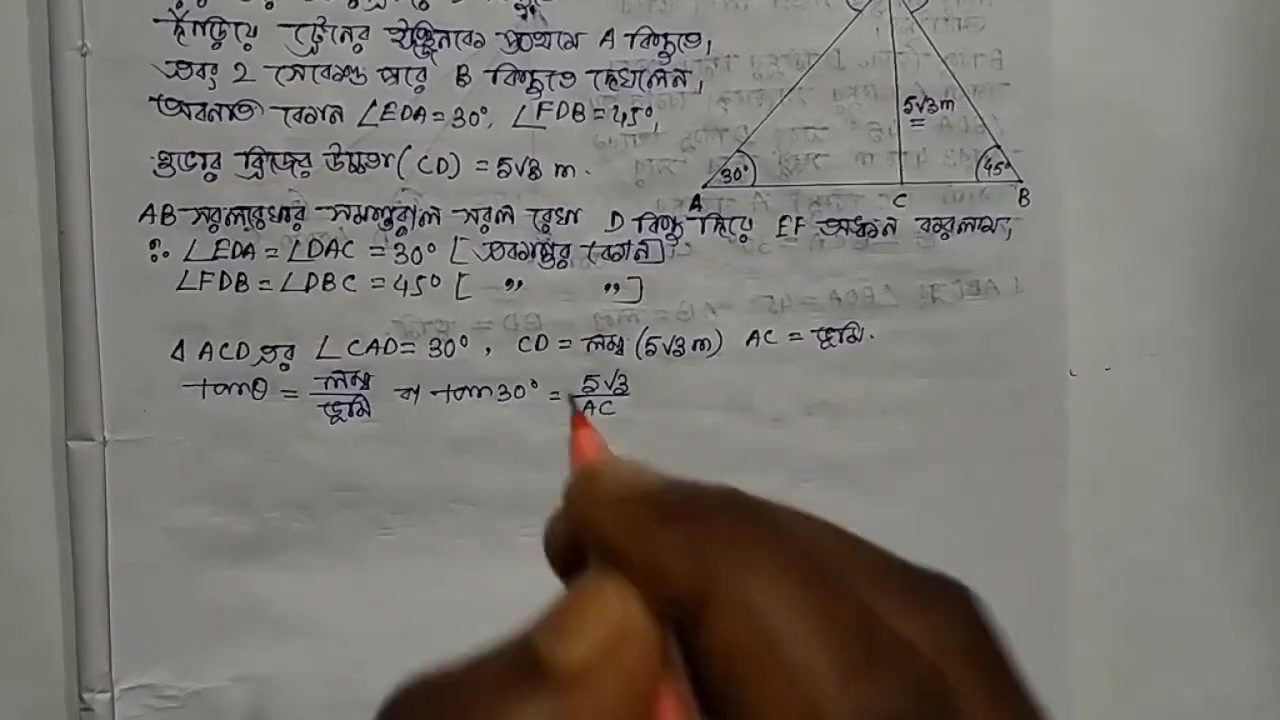 দাঁড়িয়ে ট্রেনের ইঞ্জিনকে প্রথমে A বিন্দুতে,
এবং 2 সেকেন্ড পরে B বিন্দুতে দেখলেন,
অবনতি কোণ ∠EDA = 30°, ∠FDB = 45°,
ওভার ব্রিজের উচ্চতা (CD) = 5√3 m.
5√3 m
30°
45°
A
C
B
AB সরলরেখার সমান্তরাল সরল রেখা D বিন্দু দিয়ে EF অঙ্কন করলাম,
∴ ∠EDA = ∠DAC = 30° [একান্তর কোণ]
∠FDB = ∠DBC = 45° [ " " ]
Δ ACD এর ∠CAD = 30°, CD = লম্ব (5√3 m) AC = ভূমি.
tanθ = লম্ব/ভূমি বা tan 30° = 5√3/AC